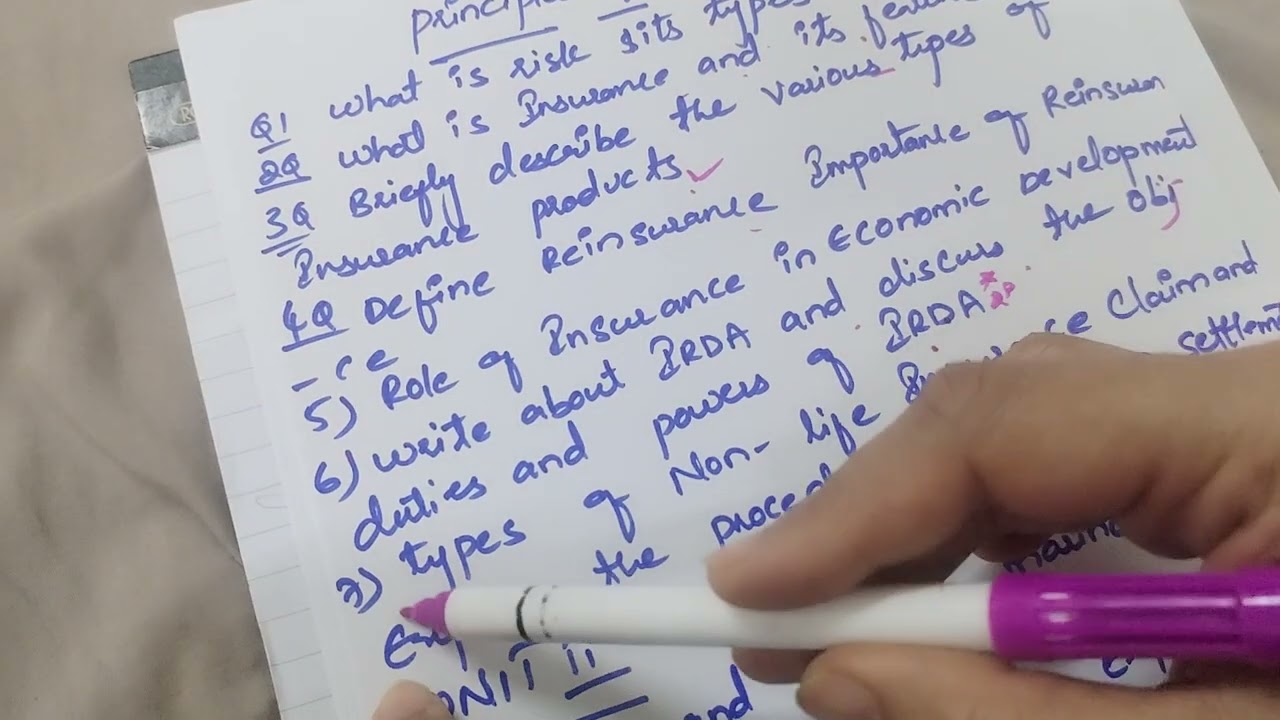 Q1 what is risk & its types
2Q what is Insurance and its
3Q Briefly describe the various types of
Insurance products
4Q Define Reinsurance Importance of Reinsuran
- ce
5) Role of Insurance in Economic Development
6) write about IRDA and discuss the Obj
duties and powers of IRDA
7) types of Non-life Claim and
the
UNIT II
and